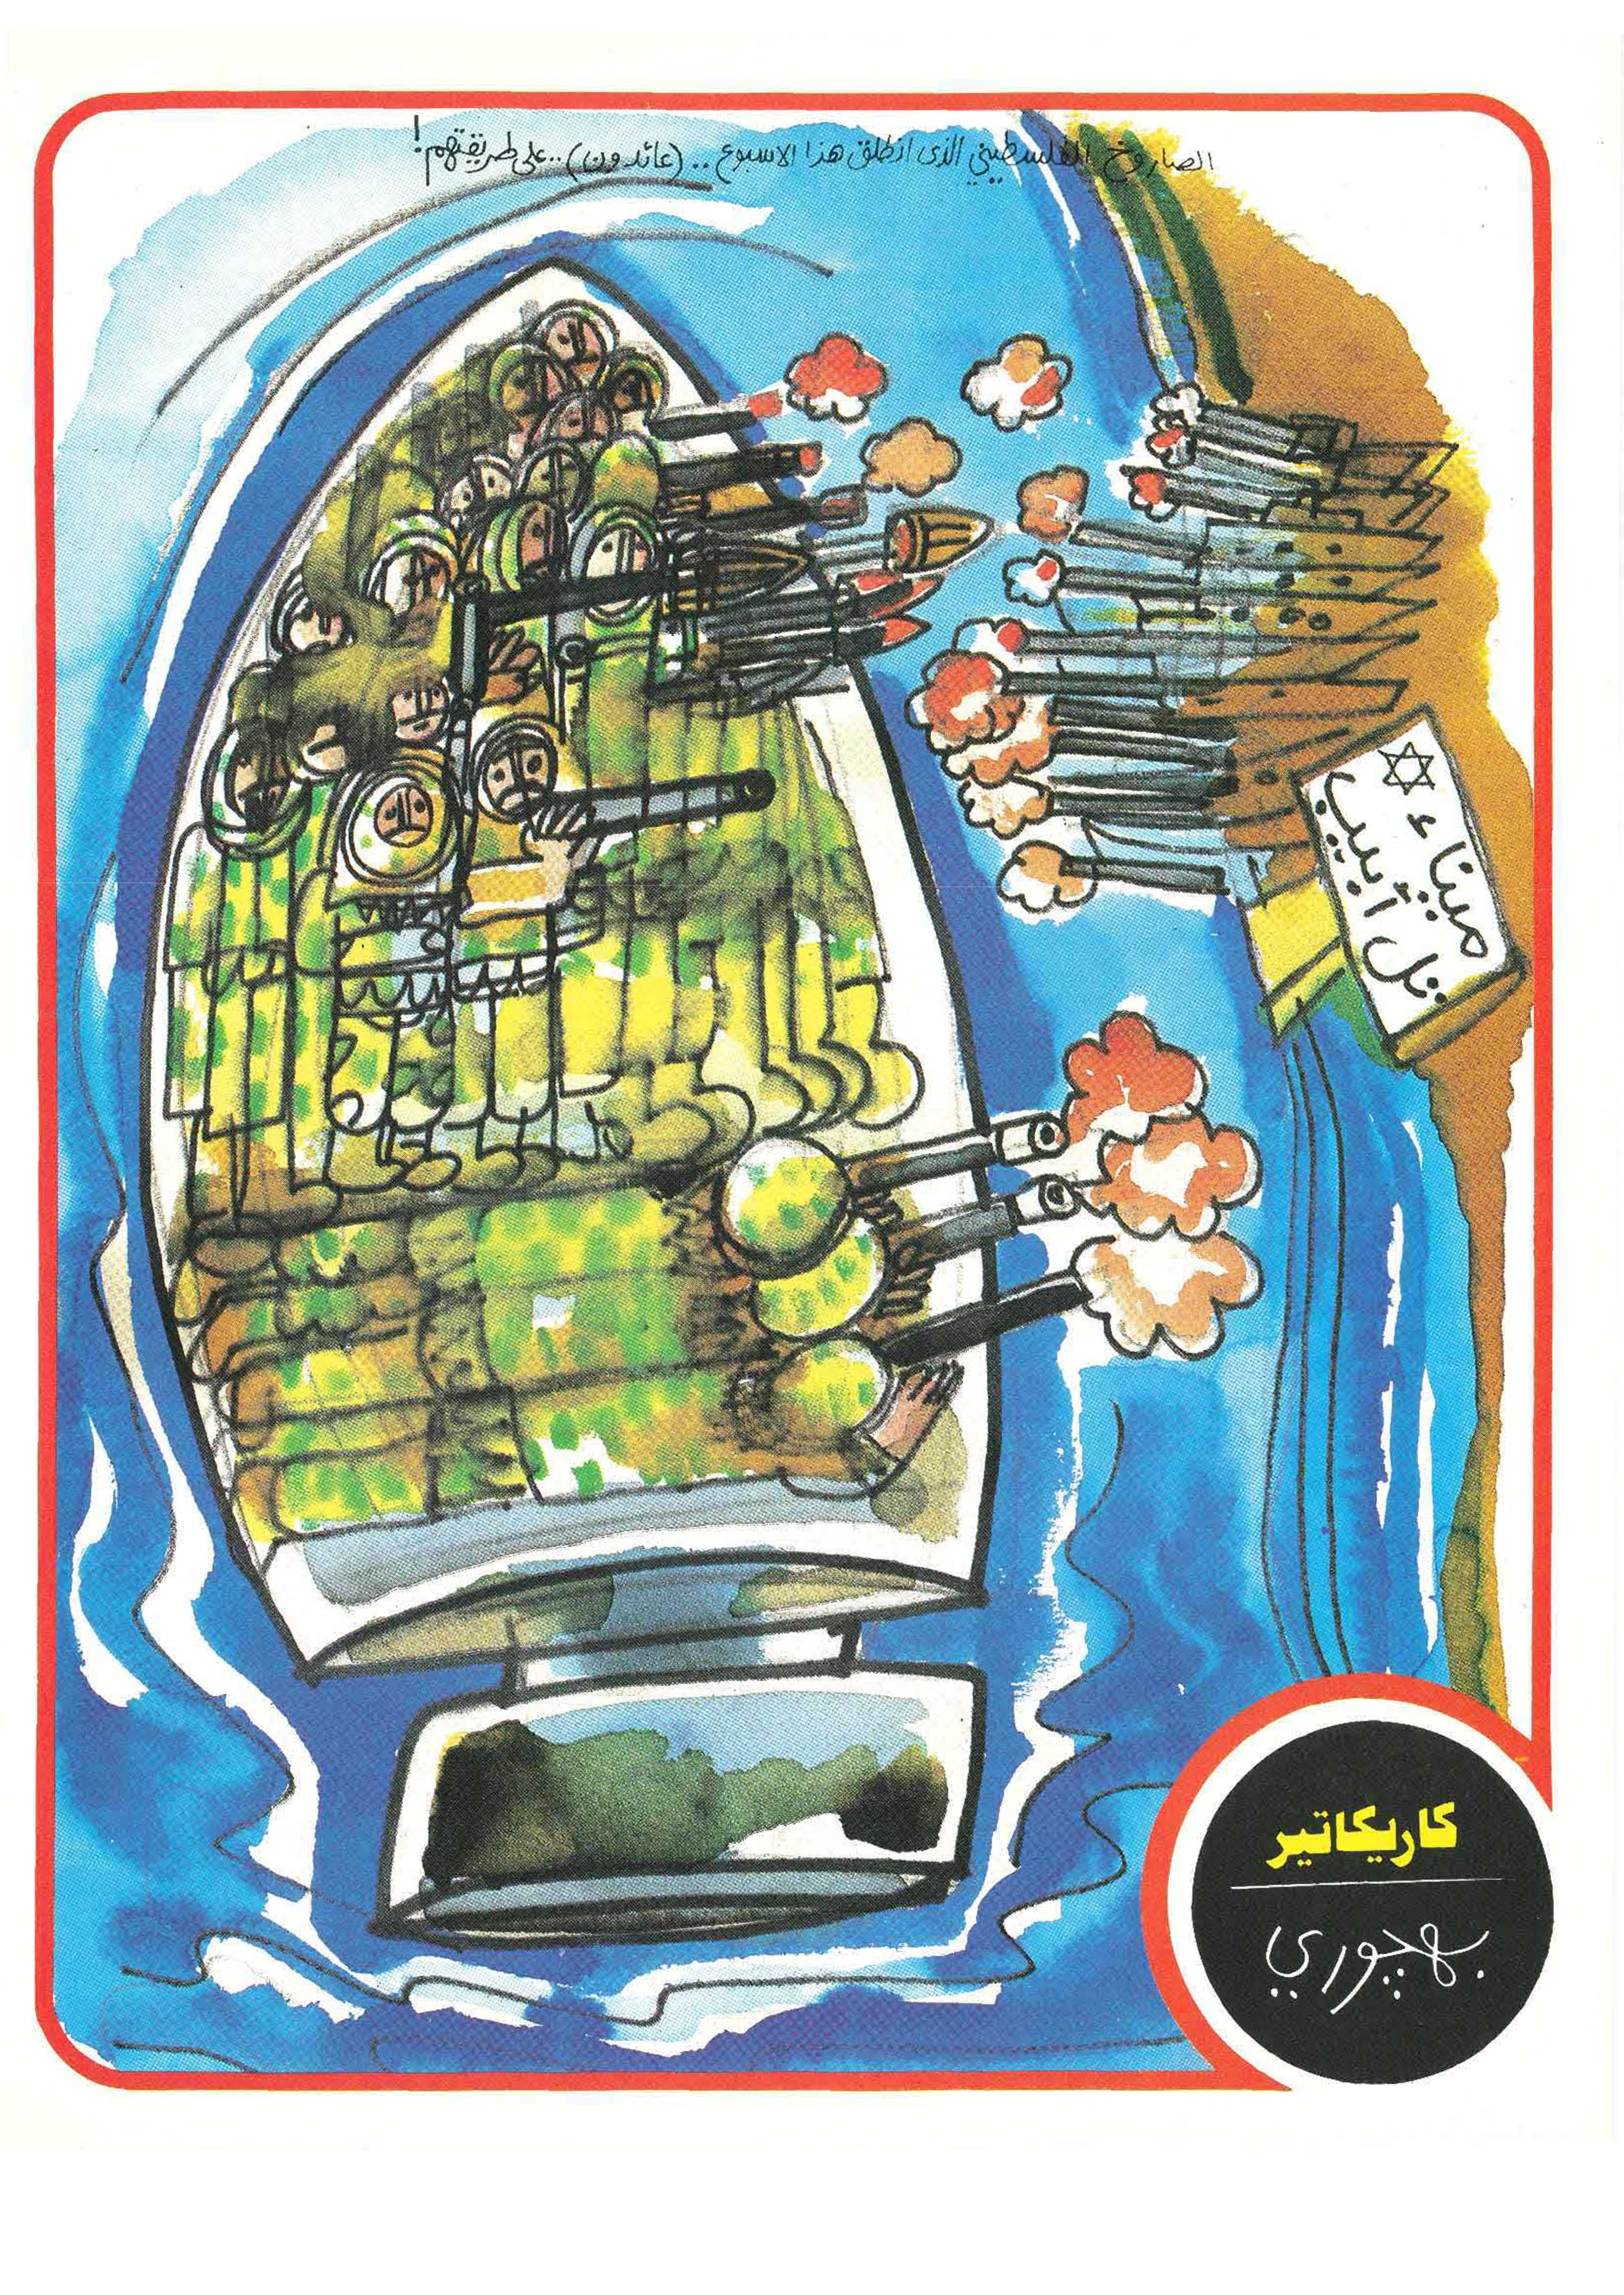 الصاروخ الفلسطيني الذى انطلق هذا الاسبوع .. (عائدون) .. على طريقتهم !
ميناء
تل أبيب
كاريكاتير
بهچوري